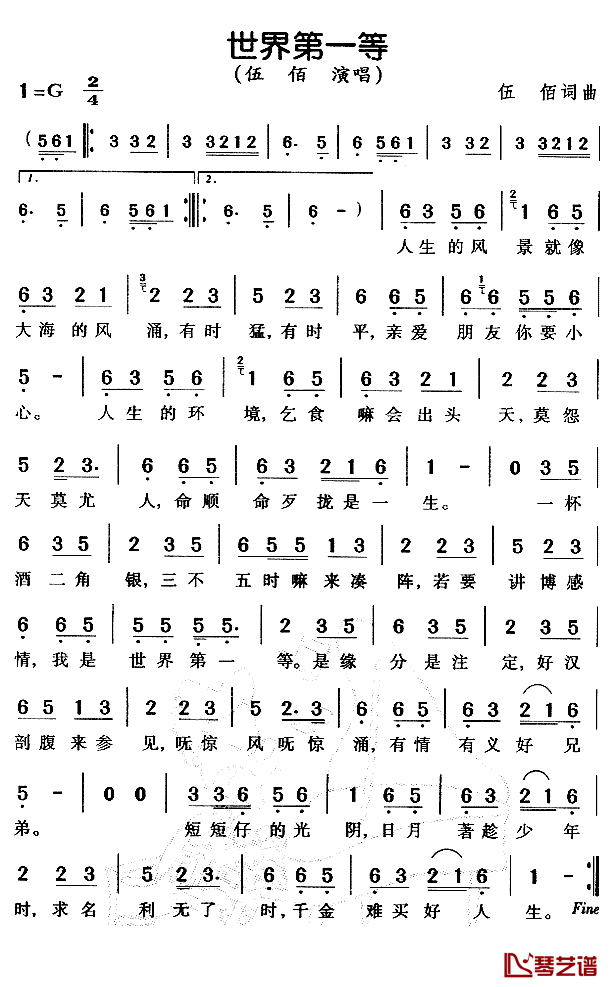 世界第一等
(伍 佰 演唱)
1=G 2/4 伍 佰 词 曲
( 561 ‖: 3 32 | 3 3212 | 6· 5 | 6 561 | 3 32 | 3 3212 |
1. 2.
6· 5 | 6 561 :‖ 6· 5 | 6 - ) | 63 56 | 2 1 65 |
人生的风 景就像
63 21 | 3 2 23 | 5 23 | 6 65 | 66 1 556 |
大海的风 涌,有时 猛,有时 平,亲爱 朋友你要小
5 - | 63 56 | 2 1 65 | 63 21 | 2 23 |
心。 人生的环 境,乞食 嘛会出头 天,莫怨
5 23· | 6 65 | 63 216 | 1 - | 0 35 |
天莫尤 人,命顺 命歹拢是一 生。 一杯
6 35 | 2 35 | 655 13 | 2 35 | 5 23 |
酒二角 银,三不 五时嘛来凑 阵,若要 讲博感
6 65 | 55 55· | 2 35 | 6 35 | 2 35 |
情,我是 世界第一 等。是缘 分是注 定,好汉
65 13 | 2 23 | 5 2·3 | 6 65 | 63 216 |
剖腹来参 见,呒惊 风呒惊 涌,有情 有义好兄
5 - | 0 0 | 336 56 | 1 65 | 63 216 |
弟。 短短仔的光 阴,日月 著趁少年
2 23 | 5 23· | 6 65 | 63 216 | 1 - :‖
时,求名 利无了 时,千金 难买好人 生。 Fine
琴艺谱